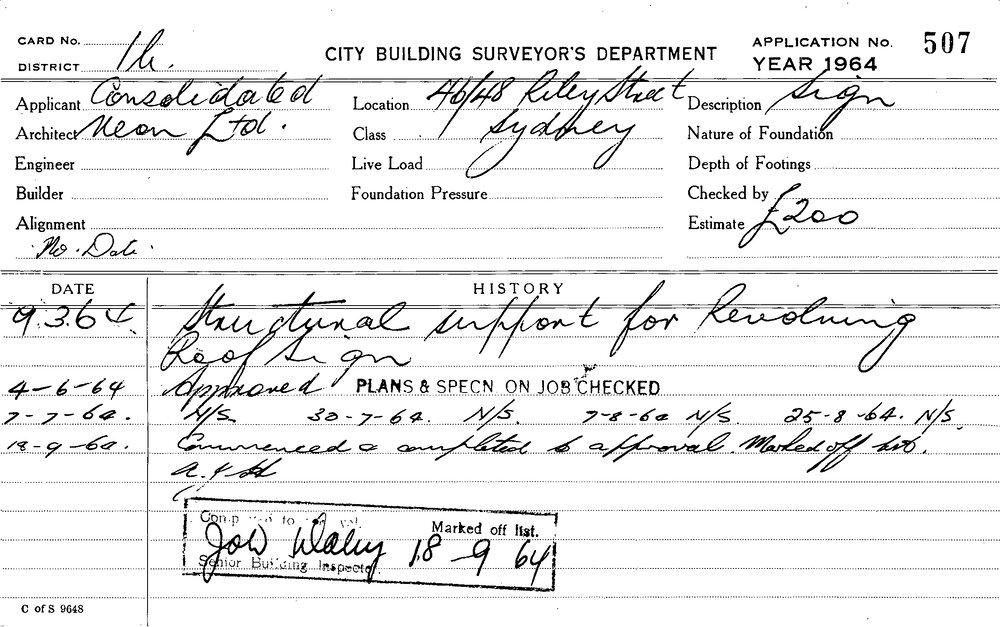 CARD No.
DISTRICT
CITY BUILDING SURVEYOR'S DEPARTMENT
APPLICATION No. 507
YEAR 1964
Applicant Consolidated
Location 46/48 Riley Street
Description Sign
Architect Neon Ltd.
Class Sydney
Nature of Foundation
Engineer
Live Load
Depth of Footings
Builder
Foundation Pressure
Checked by
Alignment
Estimate £200
No. Date.
DATE HISTORY
9.3.64 Structural support for Revolving
Roof Sign
4-6-64 Approved PLANS & SPECN ON JOB CHECKED
7-7-64. N/S. 30-7-64. N/S. 7-8-64 N/S. 25-8-64. N/S.
18-9-64. Commenced & completed to approval. Marked off list.
Marked off list.
18-9 64
Senior Building Inspector
C of S 9648